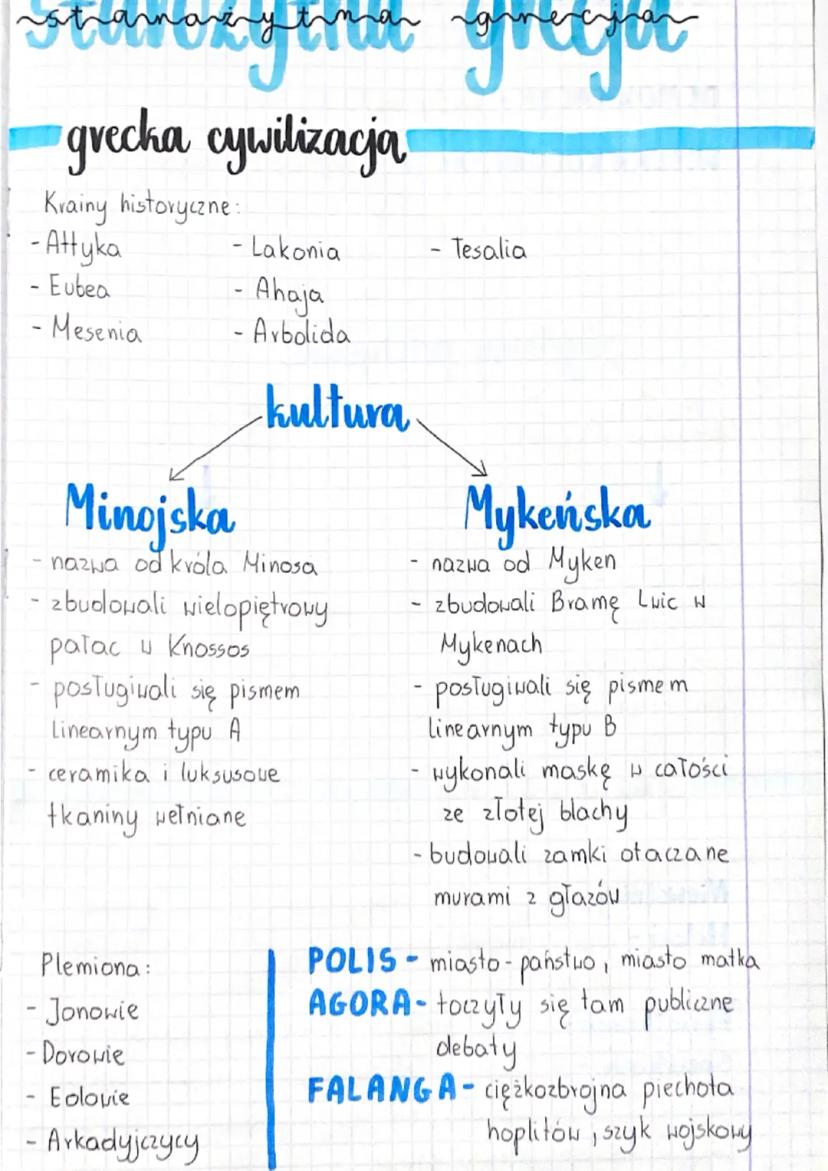 starożytna grecja
grecka cywilizacja
Krainy historyczne:
- Attyka
- Eubea
- Mesenia
- Lakonia
- Ahaja
- Arbolida
- Tesalia
kultura
Minojska
- nazwa od króla Minosa
- zbudowali wielopiętrowy
pałac w Knossos
- posługiwali się pismem
linearnym typu A
- ceramika i luksusowe
tkaniny wełniane
Mykeńska
- nazwa od Myken
- zbudowali Bramę Lwic w
Mykenach
- posługiwali się pismem
linearnym typu B
- wykonali maskę w całości
ze złotej blachy
- budowali zamki otaczane
murami z głazów
Plemiona:
- Jonowie
- Dorowie
- Eolowie
- Arkadyjczycy
POLIS - miasto-państwo, miasto matka
AGORA - toczyły się tam publiczne
debaty
FALANGA - ciężkozbrojna piechota
hoplitów, szyk wojskowy